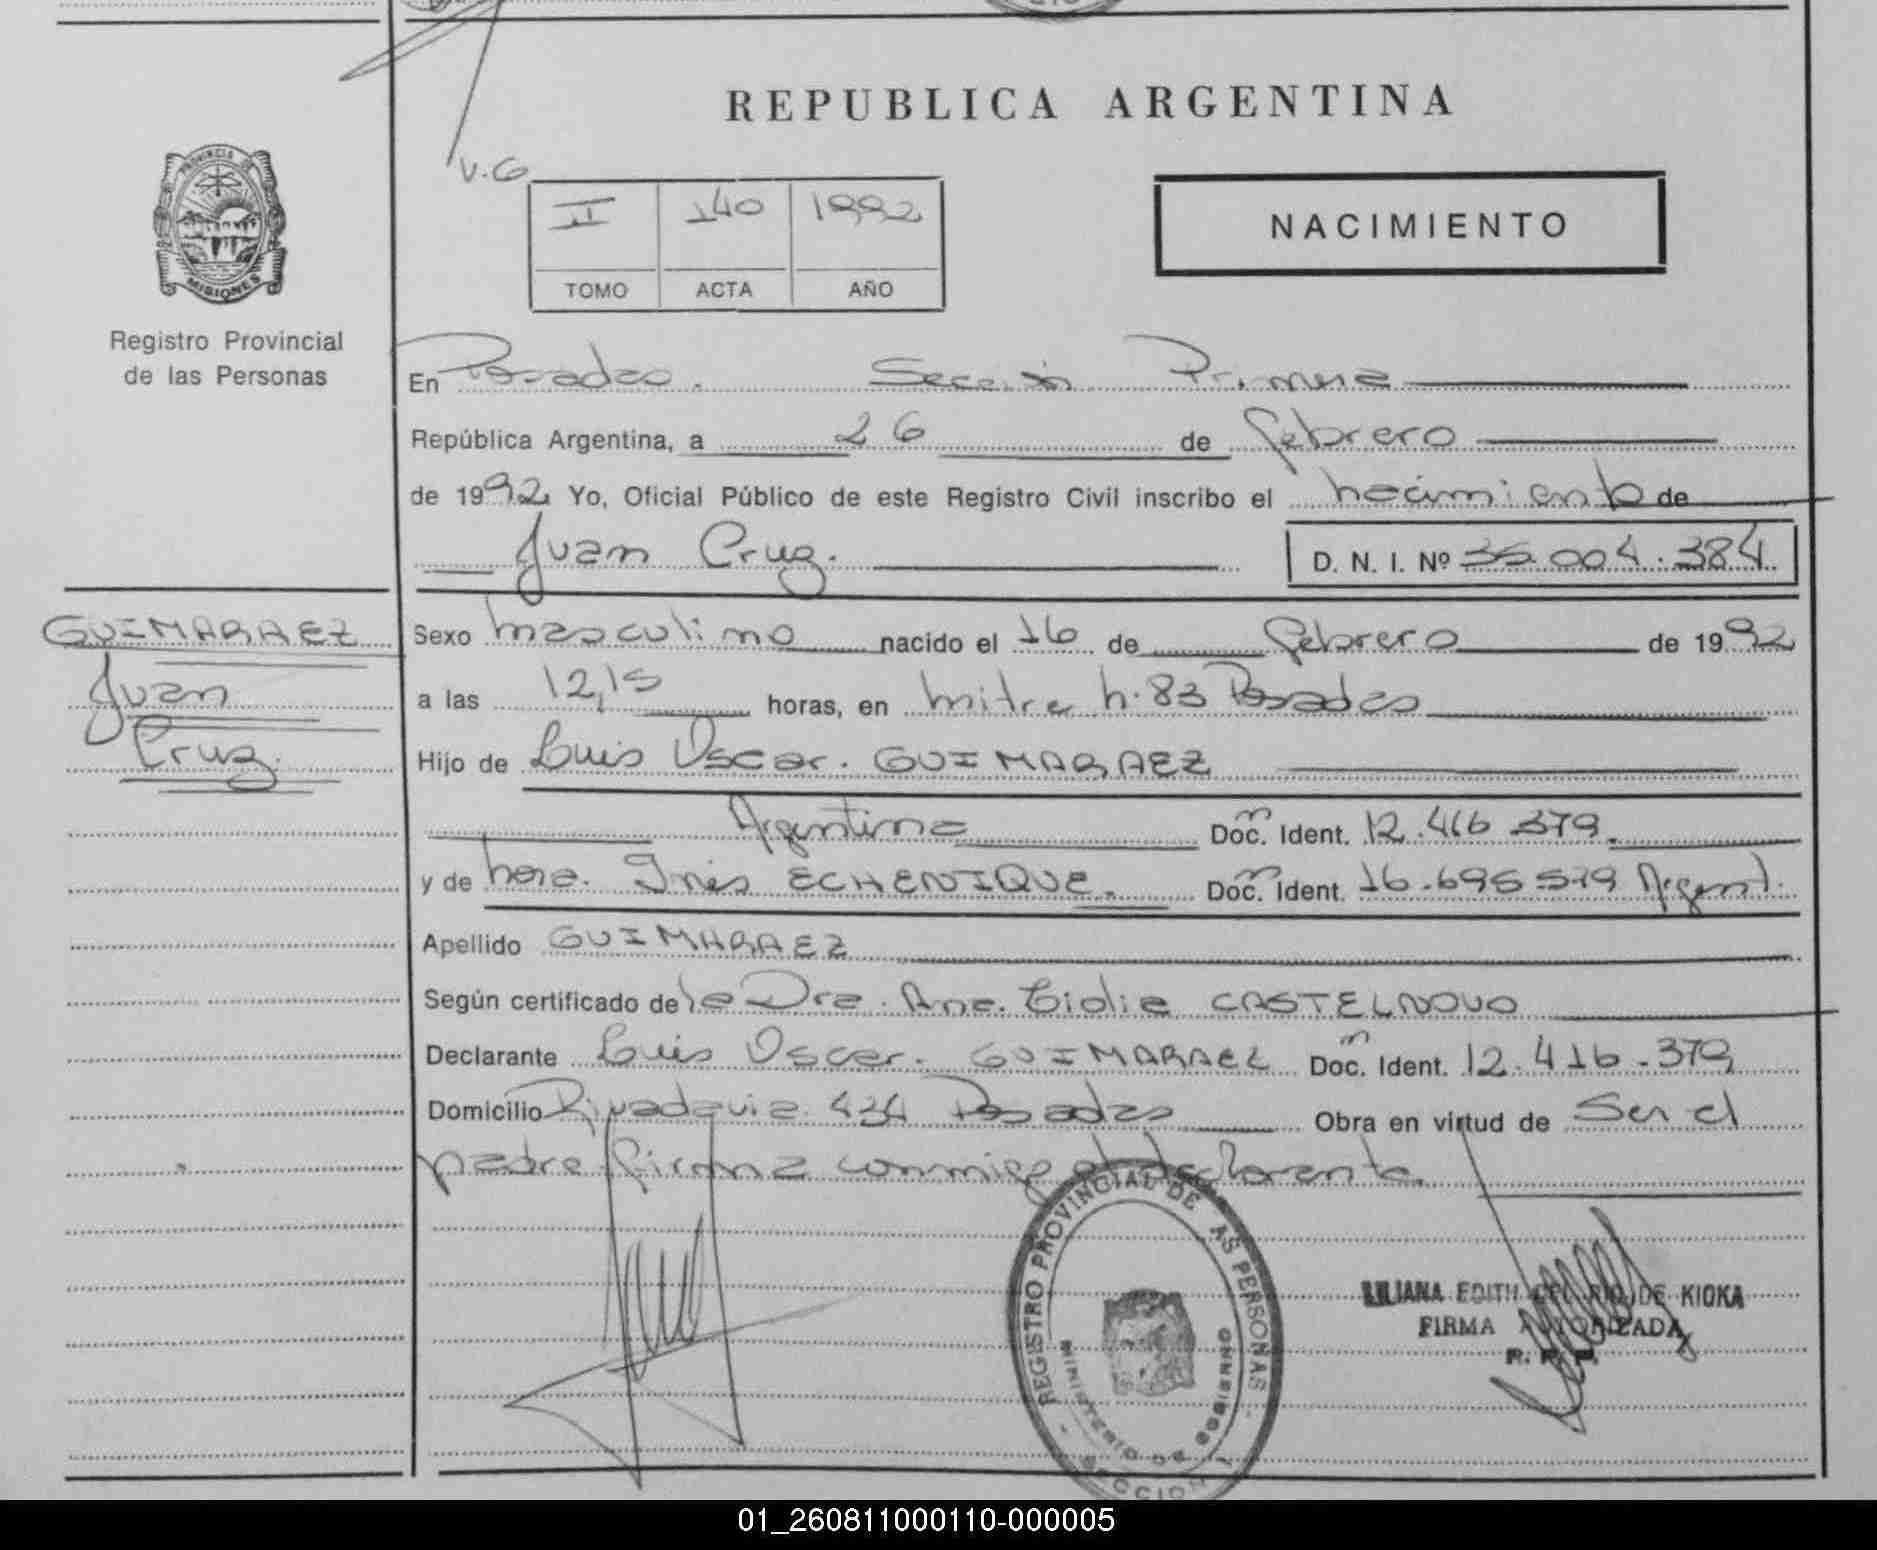 REPUBLICA ARGENTINA
PROVINCIA DE
MISIONES
Registro Provincial
de las Personas
V.G
II 140 1992
TOMO ACTA AÑO
NACIMIENTO
En Posadas. Sección Primera
República Argentina, a 26 de febrero
de 1992 Yo, Oficial Público de este Registro Civil inscribo el nacimiento de
Juan Cruz. D. N. I. Nº 36.004.384
GUIMARAEZ
Juan
Cruz.
Sexo masculino nacido el 16 de febrero de 1992
a las 12,15 horas, en mitre n. 83 Posadas
Hijo de Luis Oscar. GUIMARAEZ
Argentina Doc. Ident. 12.416.379.
y de Inés ECHENIQUE. Doc. Ident. 16.695.579 Argent.
Apellido GUIMARAEZ
Según certificado de la Dra. Ana. Lidia CASTELNOVO
Declarante Luis Oscar. GUIMARAEZ Doc. Ident. 12.416.379
Domicilio Rivadavia 434 Posadas Obra en virtud de Ser el
padre firma conmigo el declarante.
REGISTRO PROVINCIAL DE LAS PERSONAS
MINISTERIO DE GOBIERNO
SECCION 1
LILIANA EDITH DEL RIO DE KIOKA
FIRMA AUTORIZADA
R. P. P.
01_260811000110-000005